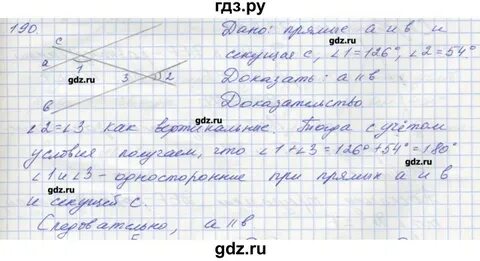 гдз.ру
190.
Дано: прямые a и b и
секущая c, ∠1=126°, ∠2=54°
Доказать: a∥b
Доказательство
c
a
1
3
2
b
gdz.ru
gdz.ru
gdz.ru
gdz.ru
∠2=∠3 как вертикальные. Тогда с учётом
условия получаем, что ∠1+∠3=126°+54°=180°
∠1 и ∠3 - односторонние при прямых a и b
и секущей c.
gdz.ru
gdz.ru
gdz.ru
Следовательно, a∥b
gdz.ru